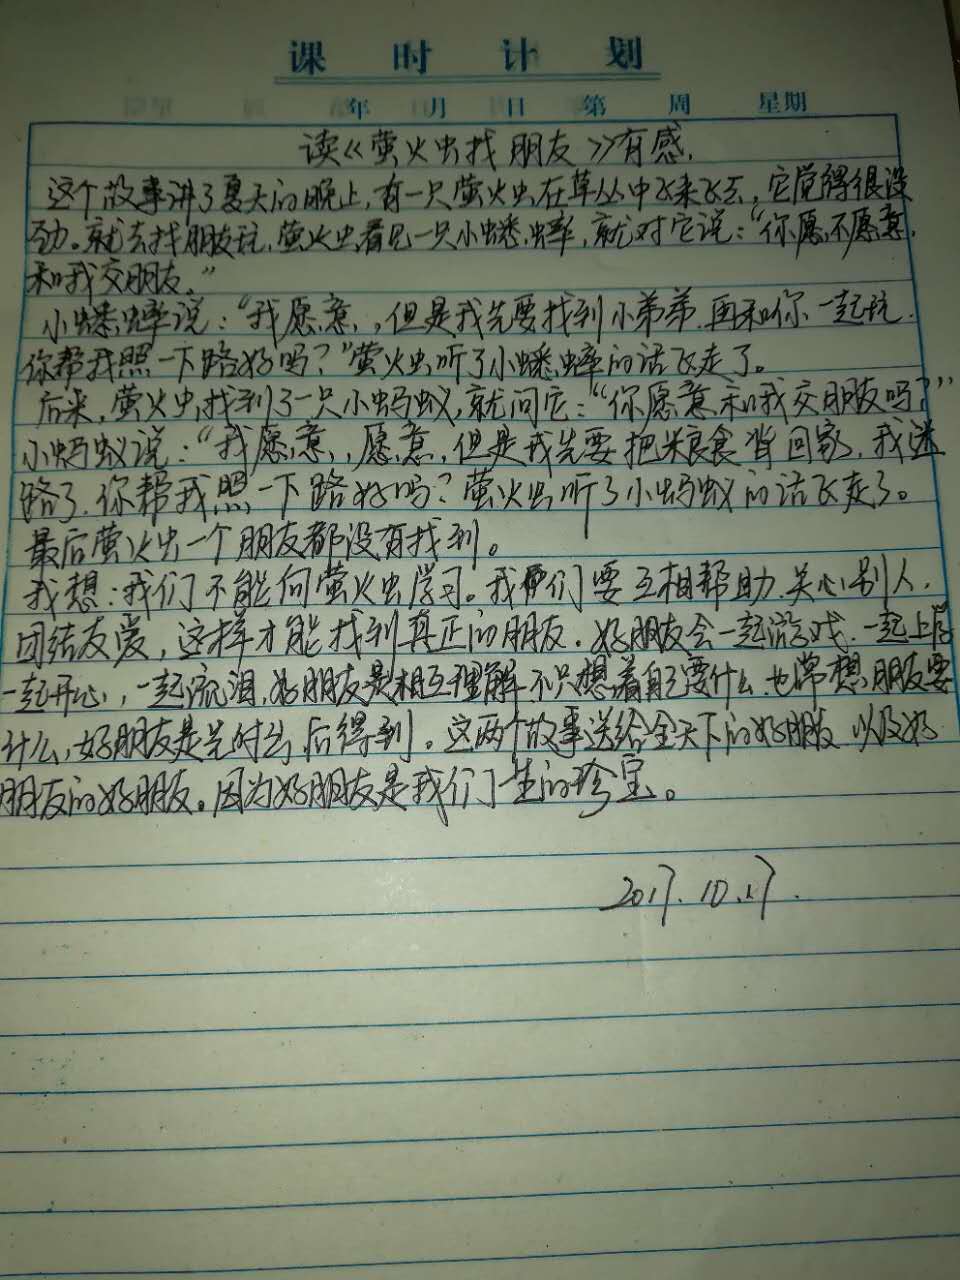 课时计划
年 月 日 第 周 星期
读《萤火虫找朋友》有感.
这个故事讲了夏天的晚上,有一只萤火虫在草丛中飞来飞去,它觉得很没
劲。就去找朋友玩,萤火虫看见一只小蟋蟀,就对它说:“你愿不愿意,
和我交朋友。”
小蟋蟀说:“我愿意,,但是我先要找到小弟弟.再和你一起玩.
你帮我照一下路好吗?”萤火虫听了小蟋蟀的话飞走了。
后来,萤火虫找到了一只小蚂蚁,就问它:“你愿意和我交朋友吗?”
小蚂蚁说:“我愿意,愿意,但是我先要把粮食背回家,我迷
路了.你帮我照一下路好吗?萤火虫听了小蚂蚁的话飞走了。
最后萤火虫一个朋友都没有找到。
我想:我们不能向萤火虫学习。我们要互相帮助.关心别人.
团结友爱,这样才能找到真正的朋友.好朋友会一起游戏.一起上学
一起开心,一起流泪.好朋友是相互理解.不只想着自己要什么.也常想朋友要
什么,好朋友是先付出,后得到。这两个故事送给全天下的好朋友以及好
朋友的好朋友。因为好朋友是我们一生的珍宝。
2017.10.17.